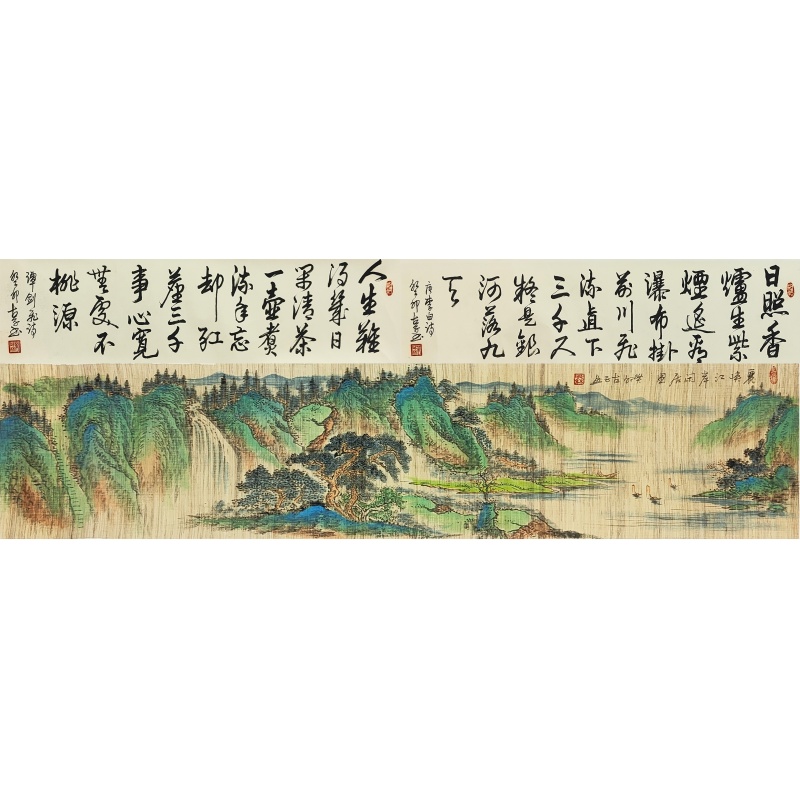 日照香
爐生紫
煙遥看
瀑布掛
前川飛
流直下
三千尺
疑是銀
河落九
天
唐李白诗
癸卯書
人生難
得幾日
閑清茶
一壺煮
流年忘
却紅
塵三千
事心寬
無處不
桃源
譚劍飛詩
癸卯書
江岸闲居图